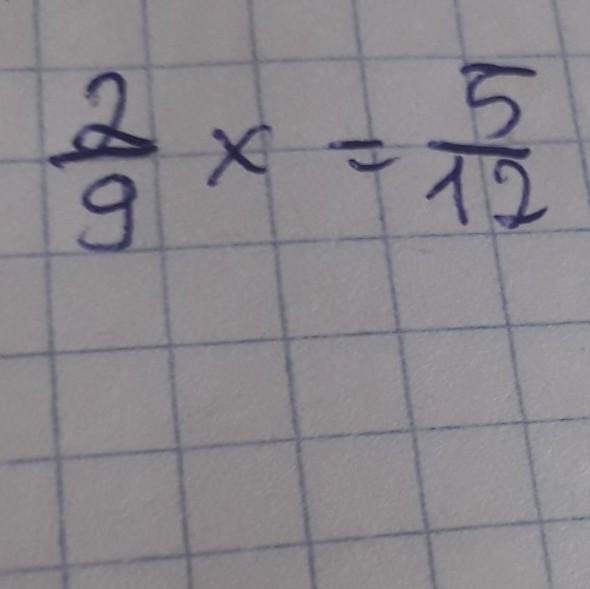 2/9 x = 5/12